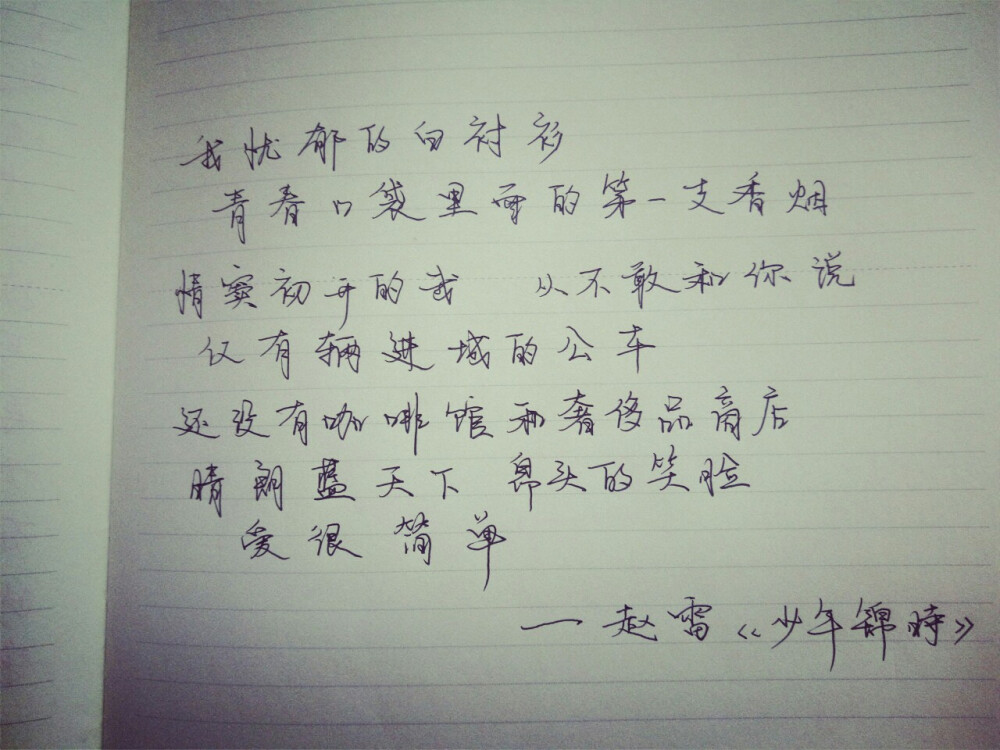 我忧郁的白衬衫
青春口袋里面的第一支香烟
情窦初开的我 从不敢和你说
仅有辆进城的公车
还没有咖啡馆和奢侈品商店
晴朗蓝天下 昂头的笑脸
爱很简单
一赵雷《少年锦时》